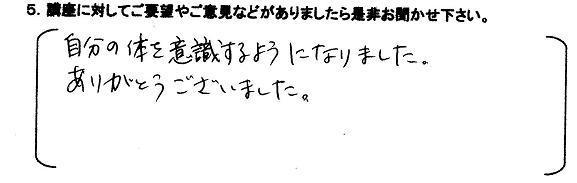 5. 講座に対してご要望やご意見などがありましたら是非お聞かせ下さい。
自分の体を意識するようになりました。
ありがとうございました。